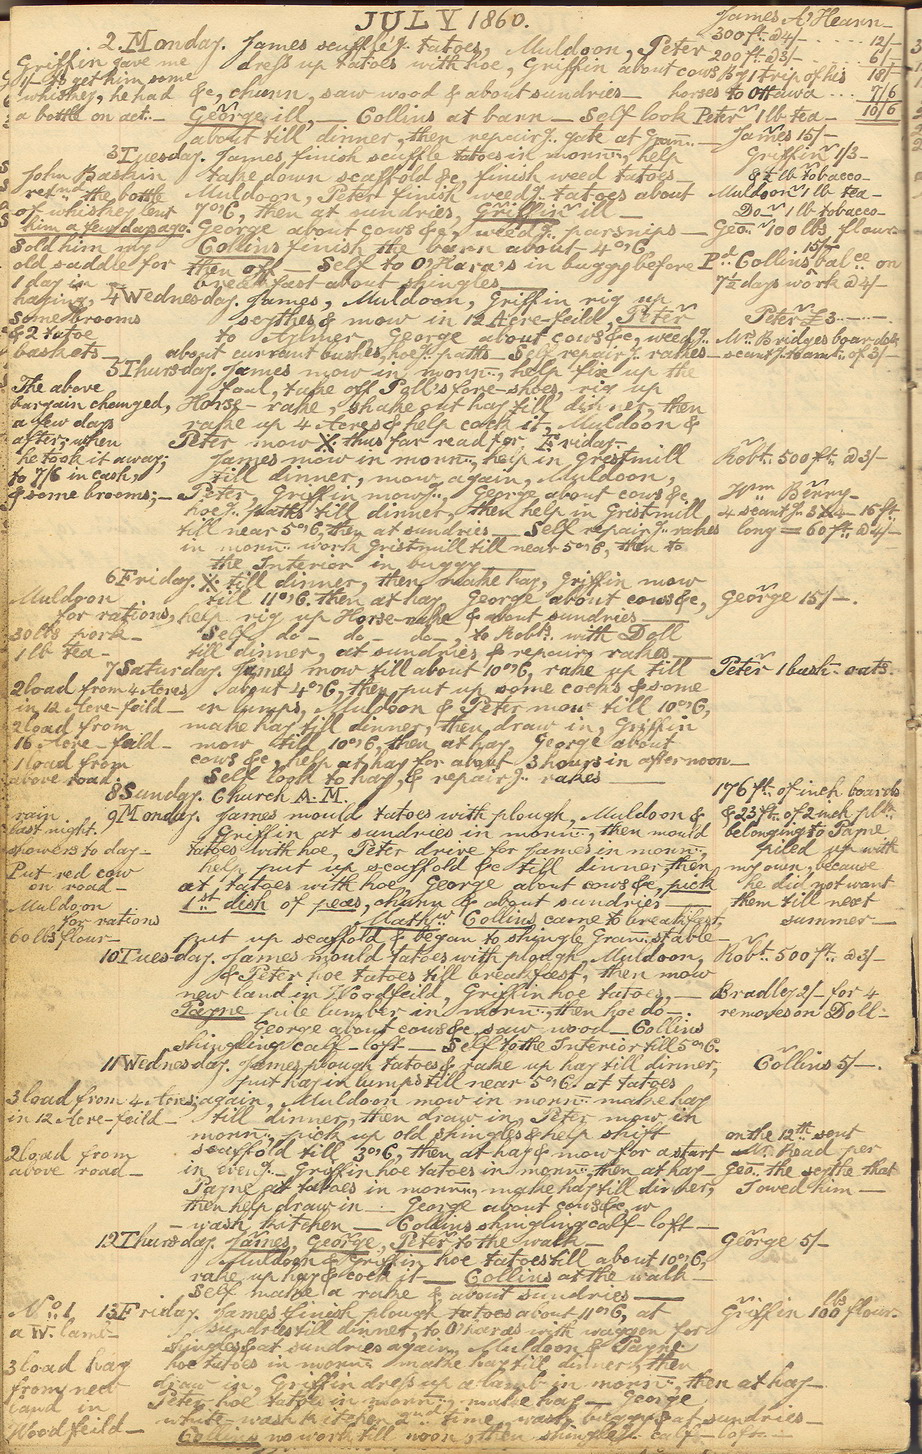 JULY 1860.
James A. Hearn
300 ft. @4/- 12/-
2. Monday. James scuffle'g tatoes, Muldoon, Peter 200 ft. @3/- 6/-
Griffin gave me
dress up tatoes with hoe, Griffin about cows, by 1 trip of his 18/-
to get him some
whiskey, he had
&c, churn, saw wood & about sundries — horses to Ottawa 7/6
10/6
a bottle on act. —
George ill, — Collins at barn — Self look Peter 1 lb tea —
about till dinner, then repair'g gate at Gran. — James 15/-
3 Tuesday. James finish scuffle tatoes in morn., help Griffin 1/3 —
John Baskin
take down scaffold &c, finish weed tatoes
& 1 lb tobacco —
ret'nd the bottle
Muldoon, Peter finish weed'g tatoes about Muldoon 1 lb tea —
of whiskey lent
7 o, 6, then at sundries, Griffin ill — Do 1 lb tobacco —
him a few days ago.
George about cows &c, weed'g parsnips — Geo. 100 lbs flour
Sold him my
Collins finish the barn about 4 o, 6 15/-
old saddle for
then off — Self to O'Hara's in buggy before Pd. Collins balce on
1 day in
breakfast about shingles — 7½ days work @4/-
haying,
4 Wednesday. James, Muldoon, Griffin rig up
some brooms
scythes & mow in 12 Acre-feild, Peter Peter £3
& 2 tatoe
to Aylmer, George about cows &c, weed'g Mr. Bridges boards
baskets —
about currant bushes, hoe'g paths — Self repair'g rakes — scant'g &amt. of 3/-
5 Thursday. James mow in morn., help fix up the
The above
foul, take off Poll's fore-shoes, rig up
bargain changed,
Horse-rake, shake out hay till dinner, then
a few days
rake up 4 Acres & help cock it, Muldoon &
after, when
Peter mow X thus far read for Friday —
he took it away;
James mow in morn., help in Gristmill Robt. 500 ft. @3/-
to 7/6 in cash,
till dinner, mow again, Muldoon,
& some brooms; —
Peter, Griffin mow'g, George about cows &c, Wm Berry —
hoe'g paths till dinner, then help in Gristmill 4 scant'g 16 ft
till near 5 o, 6, then at sundries — Self repair'g rakes long = 60 ft. @4/-
in morn. work Gristmill till near 5 o, 6, then to
the Interior in buggy —
6 Friday. X till dinner, then make hay, Griffin mow
Muldoon
till 11 o, 6, then at hay George about cows &c, George 15/-.
for rations,
help rig up Horse-rake & about sundries —
30 lbs pork —
Self do — do — do —, to Robt. with Doll
1 lb tea —
till dinner, at sundries & repair'g rakes —
7 Saturday. James mow till about 10 o, 6, rake up till Peter 1 bush. oats.
2 load from 4 Acres
about 4 o, 6, then put up some cocks & some
in 12 Acre-feild —
in lumps, Muldoon & Peter mow till 10 o, 6,
2 load from
make hay till dinner, then draw in, Griffin
16 Acre-feild —
mow till 10 o, 6, then at hay, George about
1 load from
cows &c, help at hay for about 3 hours in afternoon —
above road.
Self look to hay, & repair'g rakes —
8 Sunday. Church A.M. 176 ft. of inch boards
rain
9 Monday. James mould tatoes with plough, Muldoon & & 25 ft. of 2 inch plk.
last night.
Griffin at sundries in morn., then mould belonging to Payne
showers to day —
tatoes with hoe, Peter drive for James in morn., piled up with
Put red cow
help put up scaffold &c till dinner, then my own, because
on road —
at tatoes with hoe, George about cows &c, pick he did not want
Muldoon
1st dish of peas, churn & about sundries — them till next
for rations
Mathw. Collins came to breakfast, summer —
60 lbs flour —
put up scaffold & began to shingle Gran. stable —
10 Tuesday. James mould tatoes with plough, Muldoon, Robt. 500 ft. @3/-
& Peter hoe tatoes till breakfast, then mow
new land in Woodfeild, Griffin hoe tatoes, — Bradley 2/- for 4
Payne pile lumber in morn., then hoe do — removes on Doll —
George about cows &c, saw wood — Collins
shingling calf-loft — Self to the Interior till 5 o, 6.
11 Wednesday. James plough tatoes & rake up hay till dinner, Collins 5/-.
put hay in lumps till near 5 o, 6. at tatoes
3 load from 4 Acres
again, Muldoon mow in morn. make hay
in 12 Acre-feild —
till dinner, then draw in, Peter mow in
morn., pick up old shingles & help shift on the 12th sent
2 load from
scaffold till 3 o, 6, then at hay & mow for a start Mr. Head per
above road —
in even'g — Griffin hoe tatoes in morn., then at hay Geo. the scythe that
Payne at tatoes in morn., make hay till dinner, I owed him —
then help draw in — George about cows &c, w
— wash kitchen — Collins shingling calf-loft —
12 Thursday. James, George, Peter to the walk — George 5/-
Muldoon & Griffin hoe tatoes till about 10 o, 6,
rake up hay & cock it — Collins at the walk —
Self make a rake & about sundries —
No. 1
13 Friday. James finish plough tatoes about 11 o, 6, at Griffin 100 lbs flour.
a W. lame —
sundries till dinner, to O'Haras with waggon for
shingles & at sundries again, Muldoon & Payne
3 load hay
hoe tatoes in morn. make hay till dinner, then
from new
draw in, Griffin dress up a lamb in morn., then at hay —
land in
Peter hoe tatoes in morn., make hay — George
Woodfeild —
white-wash kitchen 2nd time, wash buggy & at sundries —
Collins no work till noon, then shingle'g calf-loft —